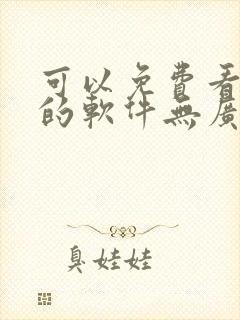 可以免費看
的軟件無廣
臭娃娃